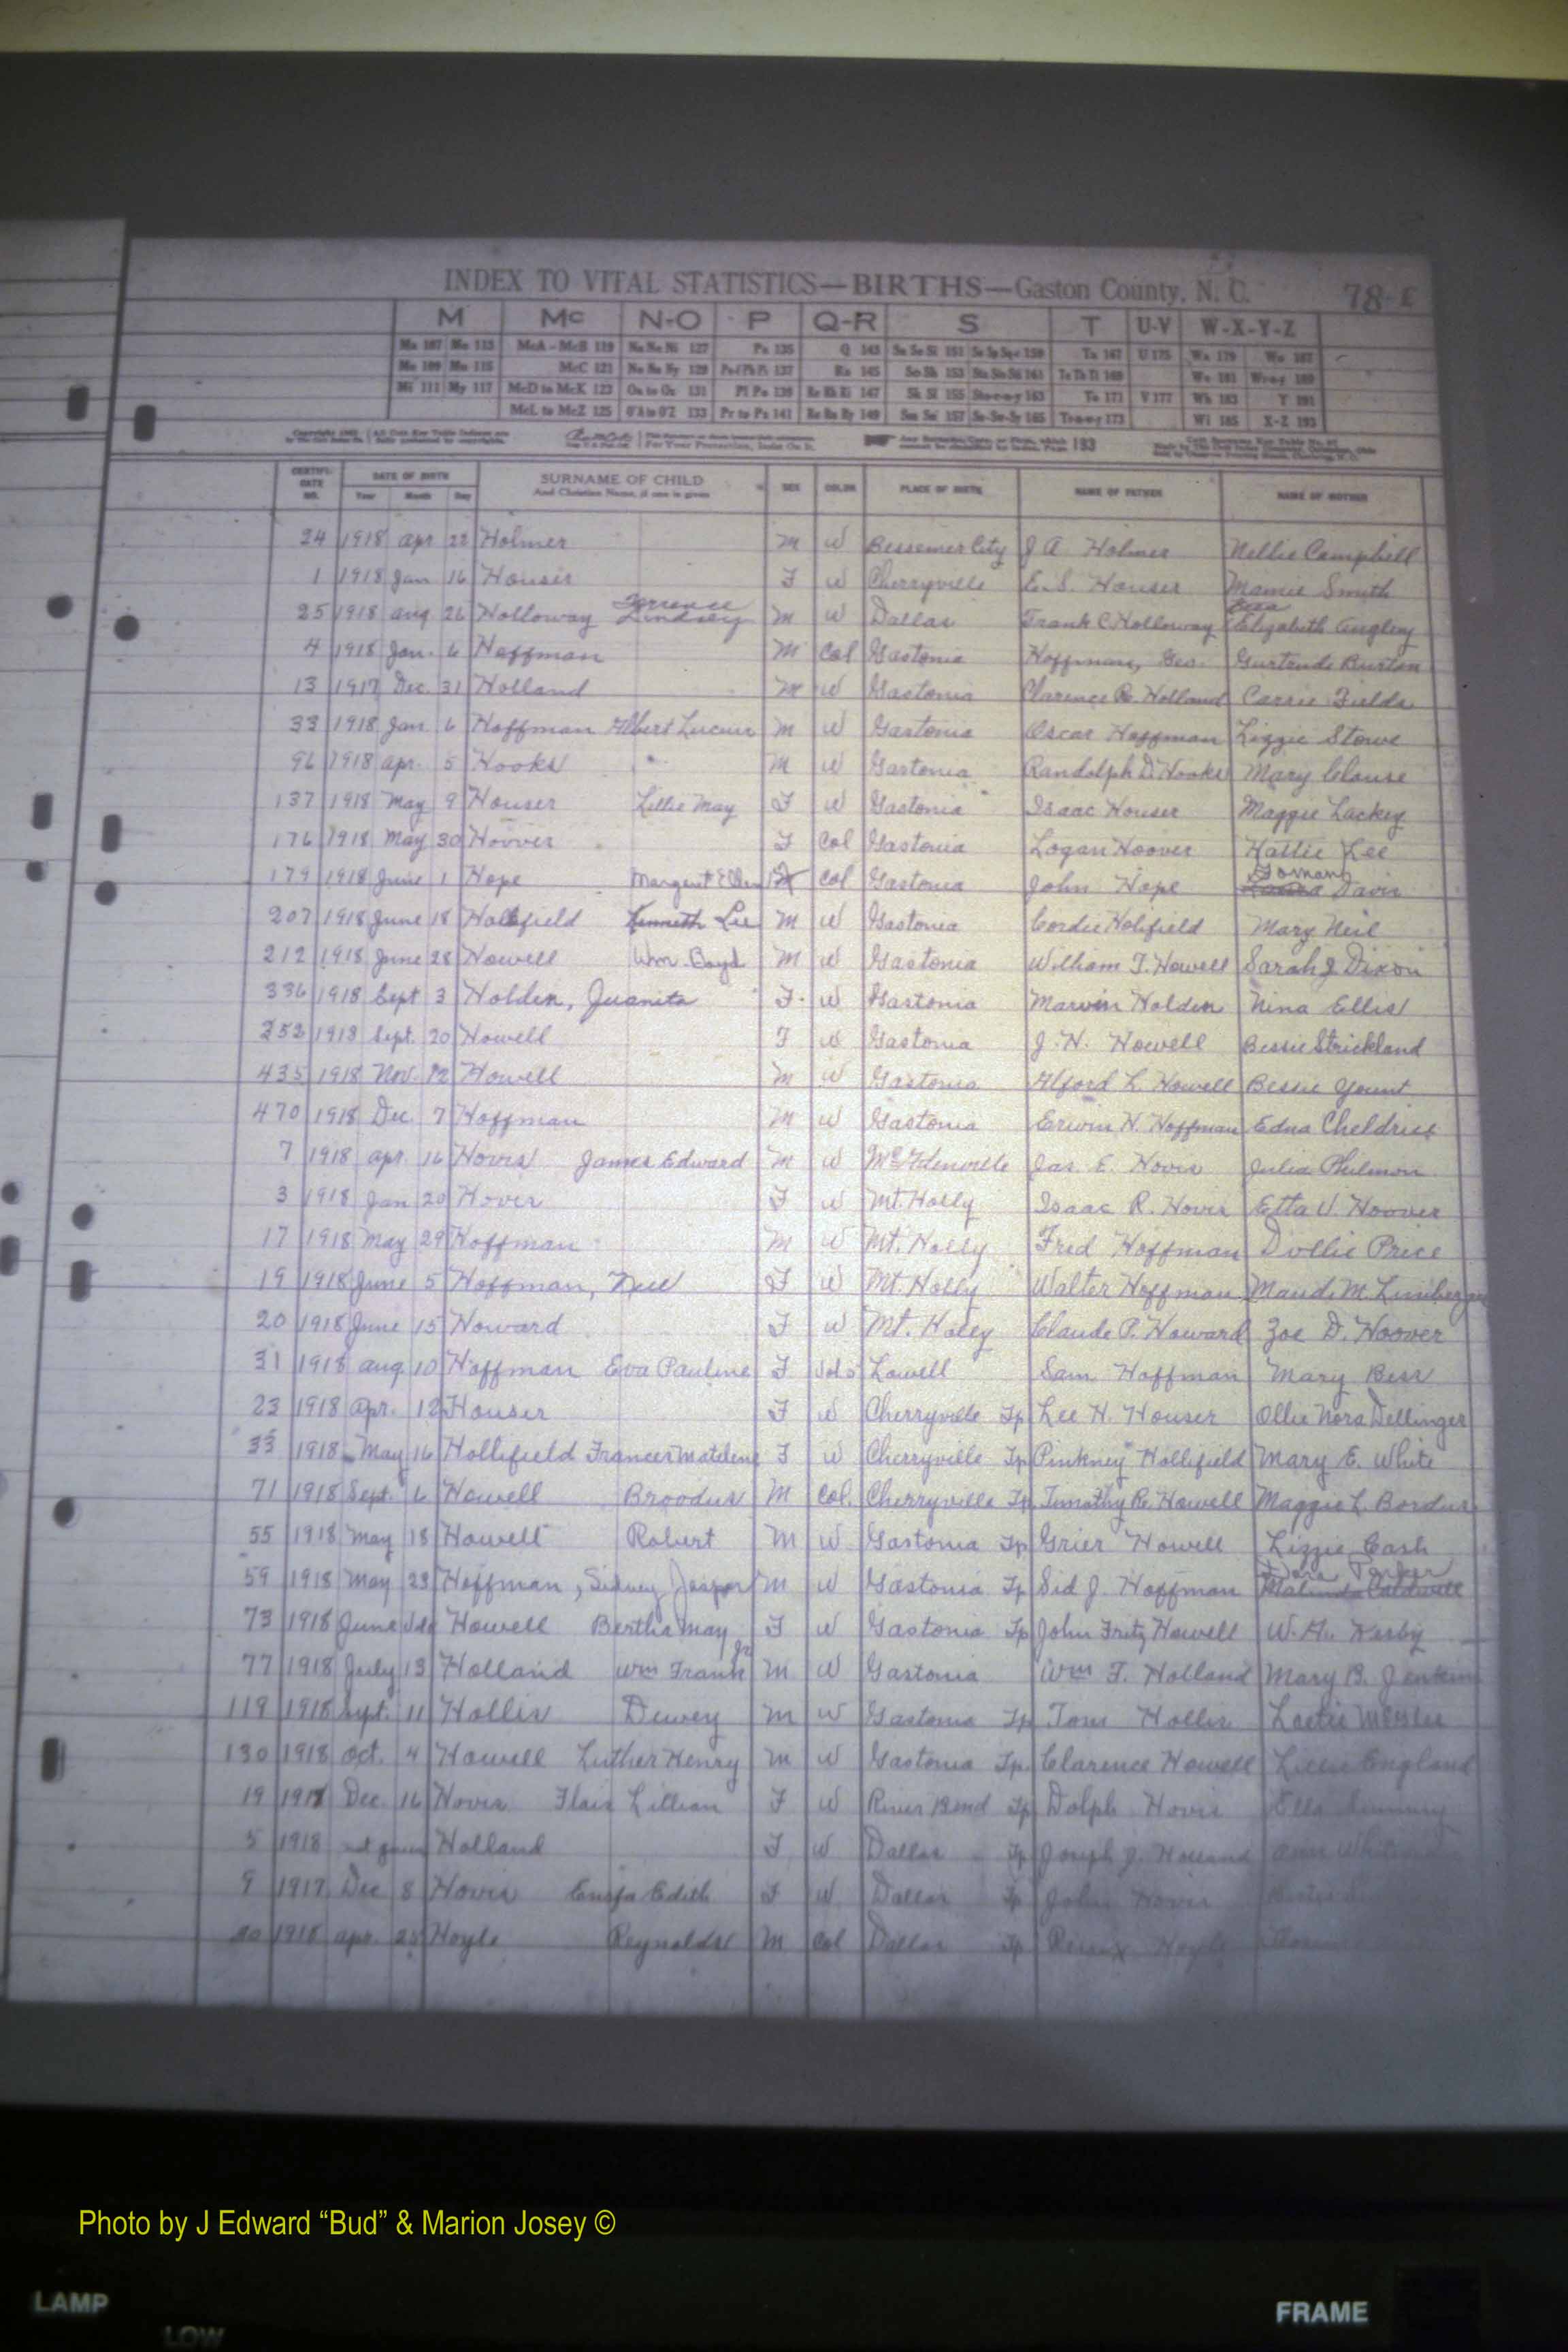 INDEX TO VITAL STATISTICS—BIRTHS—Gaston County, N. C. 78-E
M Mc N-O P Q-R S T U-V W-X-Y-Z
Ma 107 Me 113 McA-McB 119 Na Ne Ni 127 Pa 135 Q 143 Sa Se Si 151 Ta 167 U 175 Wa 179 Wo 187
McC 121 Ra 145 So Sh 153 Te Th Ti 169 We 181
Mi 111 My 117 McD to McK 123 Oa to Oz 131 Pl Po 139 Sk Sl 155 To 171 V 177 Wh 183 Y 191
McL to McZ 125 O'A to O'Z 133 Pr to Pz 141 Sm Sn 157 Wi 185 X-Z 193
For Your Protection, Insist On It. 193
CERTIFICATE NO. DATE OF BIRTH SURNAME OF CHILD SEX COLOR PLACE OF BIRTH NAME OF FATHER NAME OF MOTHER
Year Month Day And Christian Name, if one is given
24 1918 Apr 22 Holmer M W Bessemer City J A Holmer Nellie Campbell
1 1918 Jan 16 Houser F W Cherryville E. S. Houser Mamie Smith
25 1918 Aug 26 Holloway Terrence Lindsey M W Dallas Frank C Holloway Elizabeth Angley
4 1918 Jan. 6 Hoffman M Col Gastonia Hoffman, Geo. Gurtrude Burton
13 1917 Dec. 31 Holland M W Gastonia Clarence R. Holland Carrie Fields
33 1918 Jan 6 Hoffman Albert M W Gastonia Oscar Hoffman Lizzie Stowe
96 1918 Apr. 5 Hooks M W Gastonia Randolph D. Hooks Mary Clouse
137 1918 May 9 Houser Lillie May F W Gastonia Isaac Houser Maggie Lackey
176 1918 May 30 Hoover F Col Gastonia Logan Hoover Hattie Lee
179 1918 June 1 Hope Margaret Ellen Col Gastonia John Hope Davis
207 1918 June 18 Kenneth Lee M W Gastonia Cordie Holifield Mary Neil
212 1918 June 28 Howell Wm. Boyd M W Gastonia William T. Howell Sarah J Dixon
336 1918 Sept 3 Holden, Juanita F W Gastonia Marvin Holden Nina Ellis
352 1918 Sept. 20 Howell F W Gastonia J. H. Howell Bessie Strickland
435 1918 Nov. 12 Howell M W Gastonia Alford L. Howell Bessie Yount
470 1918 Dec. 7 Hoffman M W Gastonia Erwin H. Hoffman Edna
7 1918 Apr. 16 Hovis James Edward M W McAdenville Jas. E. Hovis Julia Philmon
3 1918 Jan 20 Hovis F W Mt. Holly Isaac R. Hovis Etta V. Hoover
17 1918 May 29 Hoffman M W Mt. Holly Fred Hoffman Dollie Price
19 1918 June 5 Hoffman, F W Mt. Holly Walter Hoffman Maude M. Lineberger
20 1918 June 15 Howard F W Mt. Holly Claude P. Howard Zoe D. Hoover
31 1918 Aug 10 Hoffman Eva Pauline F Lowell Sam Hoffman Mary Bess
23 1918 Apr. 12 Houser F W Cherryville Tp Lee H. Houser Ollie Nora Dellinger
33 1918 May 16 Hollifield Frances Matelene F W Cherryville Tp Pinkney Hollifield Mary E. White
71 1918 Sept. 6 Howell Broodus M Col. Cherryville Tp. Timothy R. Howell Maggie L. Bordus
55 1918 May 18 Howell Robert M W Gastonia Tp Grier Howell Lizzie Cash
59 1918 May 23 Hoffman, Sidney Jasper M W Gastonia Tp Sid J. Hoffman Dora Parker Malinda Caldwell
73 1918 June Howell Bertha May F W Gastonia Tp John Fritz Howell
77 1918 July 13 Holland Wm Frank Jr M W Gastonia Wm F. Holland Mary B. Jenkins
119 1918 Sept. 11 Hollis Dewey M W Gastonia Tp Tom Hollis
130 1918 Oct. 4 Howell Luther Henry M W Gastonia Tp. Clarence Howell Lillie England
19 1917 Dec. 16 Hovis Lillian F W River Bend Tp Dolph Hovis Ella
5 1918 Holland F W Dallas Tp Joseph J. Holland
9 1917 Dec 8 Hovis Edith F W Dallas Tp John Hovis
1918 Apr. 25 Hoyle Reynolds M Col Dallas Tp Hoyle
Photo by J Edward “Bud” & Marion Josey ©
LAMP
LOW
FRAME